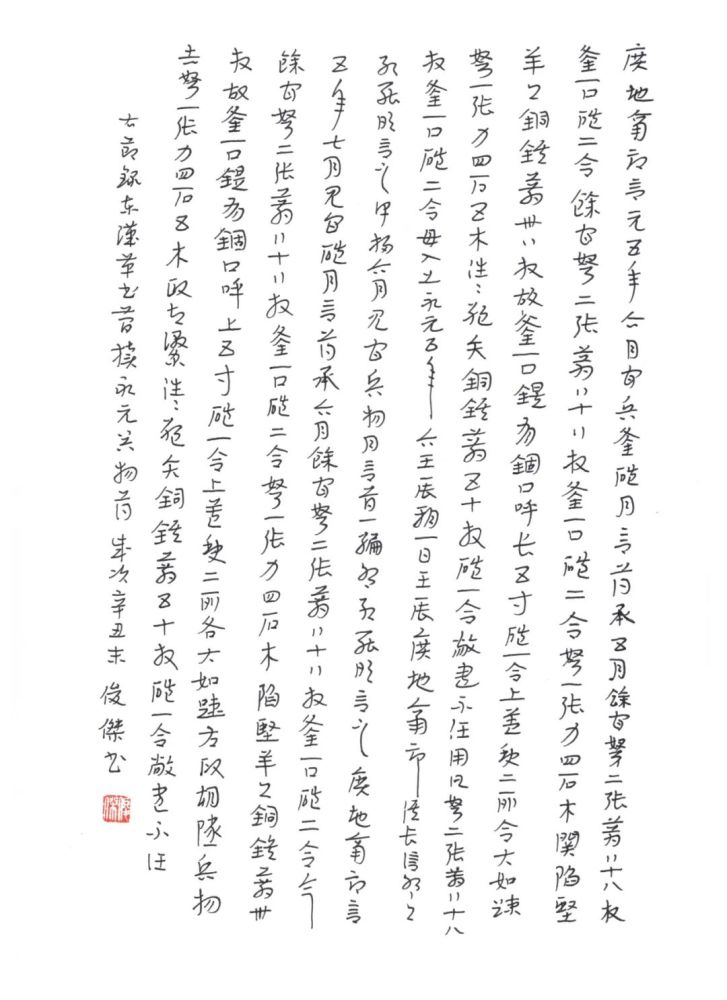 廣地南部言元五年六月官兵釜磑月言簿承五月餘官弩二張箭八十八枚
釜一口磑二合餘官弩二張箭八十八枚釜一口磑二合弩一張力四石木關陷堅
羊頭銅鍭箭卅八枚故釜一口鍉有錮口呼長五寸磑一合上蓋缺二所合大如踈
弩一張力四石五木往往絕矢銅鍭箭五十枚磑一合敝盡不任用凡弩二張箭八十八
枚釜一口磑二合毋入出永元五年六壬辰朔一日壬辰廣地南部候長信叩頭
死罪敢言之移六月見官兵物月言簿一編叩頭死罪敢言之廣地南部言
五年七月見官磑月言簿承六月餘官弩二張箭八十八枚釜一口磑二合今
餘官弩二張箭八十八枚釜一口磑二合弩一張力四石木陷堅羊頭銅鍭箭卅
枚故釜一口鍉有錮口呼上五寸磑一合上蓋缺二所各大如踈右破胡隧兵物
赤弩一張力四石五木破往往絕矢銅鍭箭五十枚磑一合敝盡不任
右節錄東漢草書簡牘永元兵物簿 歲次辛丑末 俊傑書